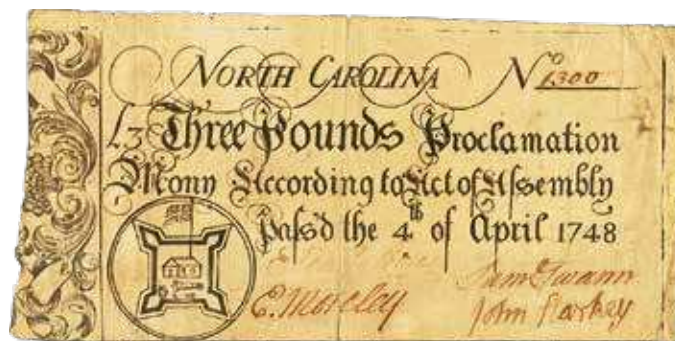 NORTH CAROLINA No 1300
£3 Three Pounds Proclamation
Mony According to Act of Assembly
pass'd the 4th of April 1748
Sam Swann
E. Moseley John Starkey